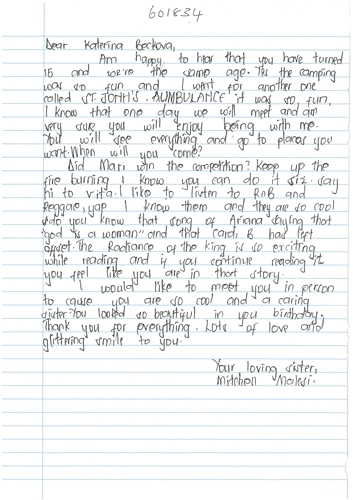 601834
Dear Katerina Beckova,
Am happy to hear that you have turned
15 and we're the same age. Tis the camping
was so fun and I went for another one
called ST. JOHN'S. AUMBULANCE it was so fun,
I know that one day we will meet and am
very sure you will enjoy being with me.
You will see everything and go to places you
want. When will you come?
Did Mari win the competition? Keep up the
fire burning I know you can do it siz. say
hi to vita. I like to listen to RnB and
Reggae, yap I know them and they are so cool
do you know that song of Ariana saying that
"god is a woman" and that cardi B has left
offset. The Radiance of the king is so exciting
while reading and if you continue reading it
you feel like you are in that story.
I would like to meet you in person
to cause you are so cool and a caring
sister. You looked so beautiful in you birthday.
Thank you for everything. Lots of love and
glittering smile to you.
Your loving sister,
Mitchell